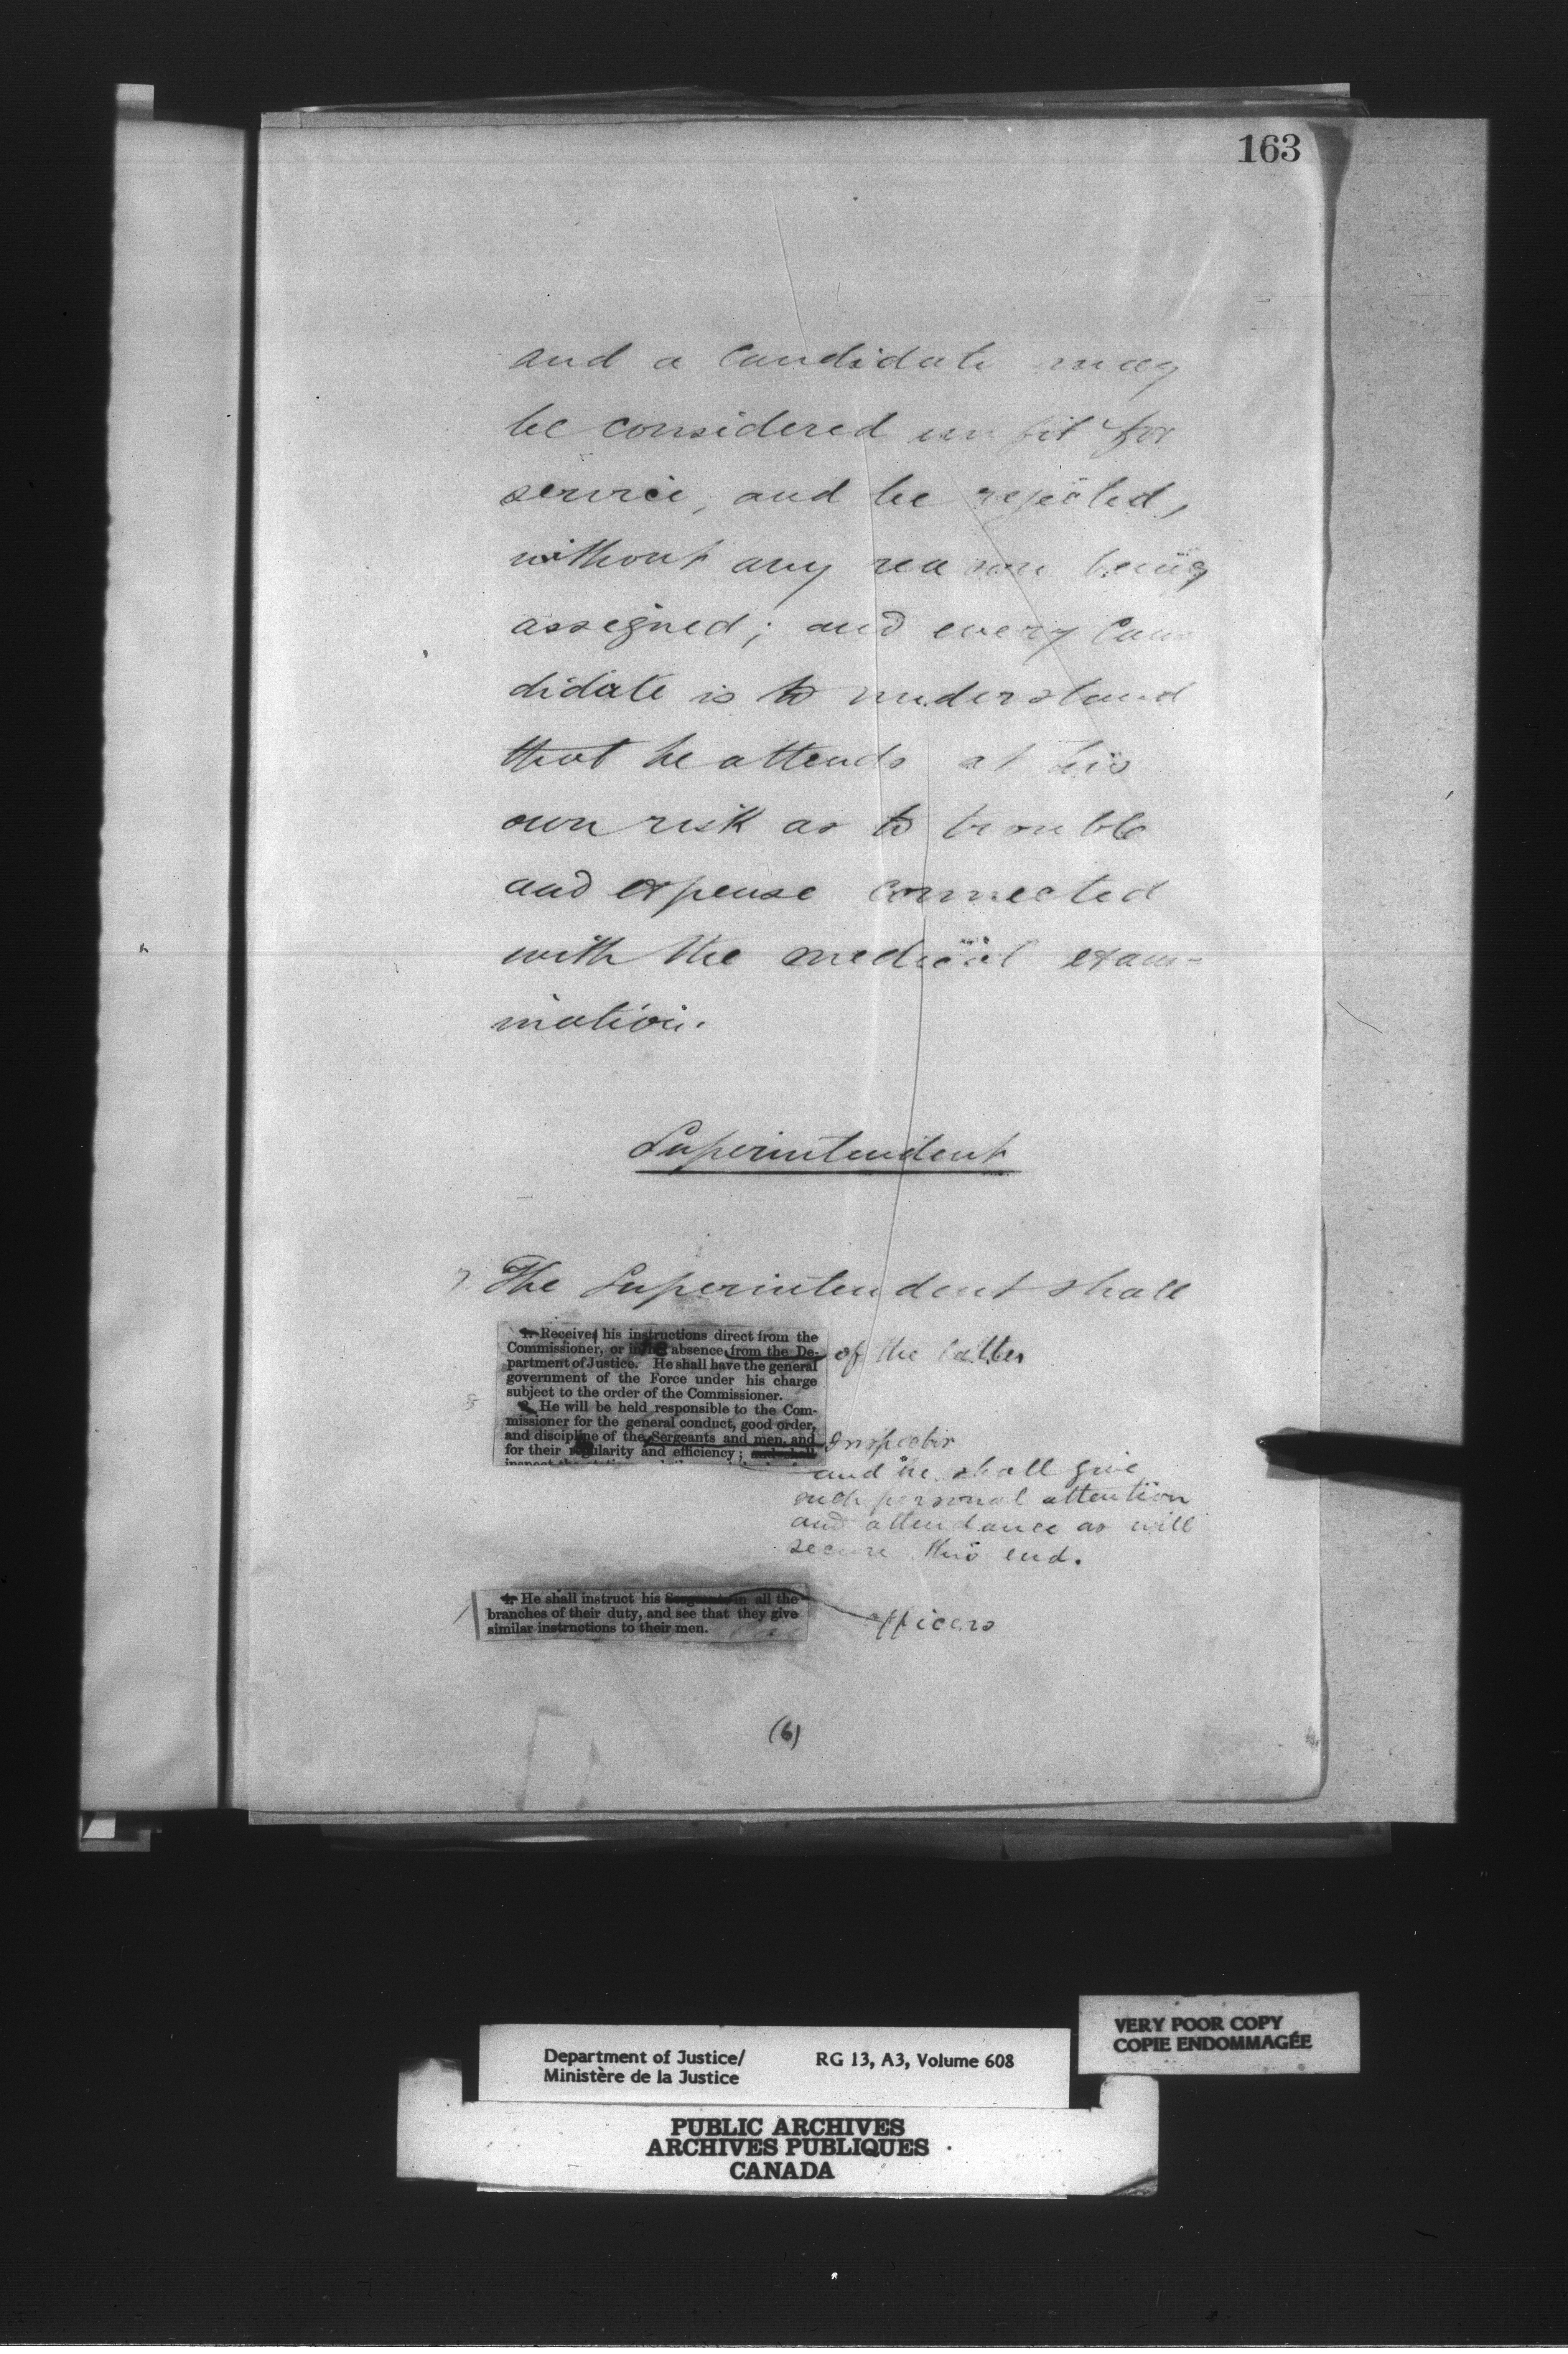 163
and a candidate may
be considered unfit for
service, and be rejected,
without any reason being
assigned; and every can
didate is to understand
that he attends at his
own risk as to trouble
and expense connected
with the medical exam-
ination.
Superintendent
The Superintendent shall
1. Receive his instructions direct from the
Commissioner, or in absence from the De- of the latter
partment of Justice. He shall have the general
government of the Force under his charge
subject to the order of the Commissioner.
2. He will be held responsible to the Com-
missioner for the general conduct, good order,
and discipline of the Sergeants and men, and Inspector
for their regularity and efficiency; and shall
and he shall give
such personal attention
and attendance as will
secure this end.
4. He shall instruct his Sergeants in all the
branches of their duty, and see that they give officers
similar instructions to their men.
(6)
VERY POOR COPY
COPIE ENDOMMAGÉE
Department of Justice/ RG 13, A3, Volume 608
Ministère de la Justice
PUBLIC ARCHIVES
ARCHIVES PUBLIQUES
CANADA